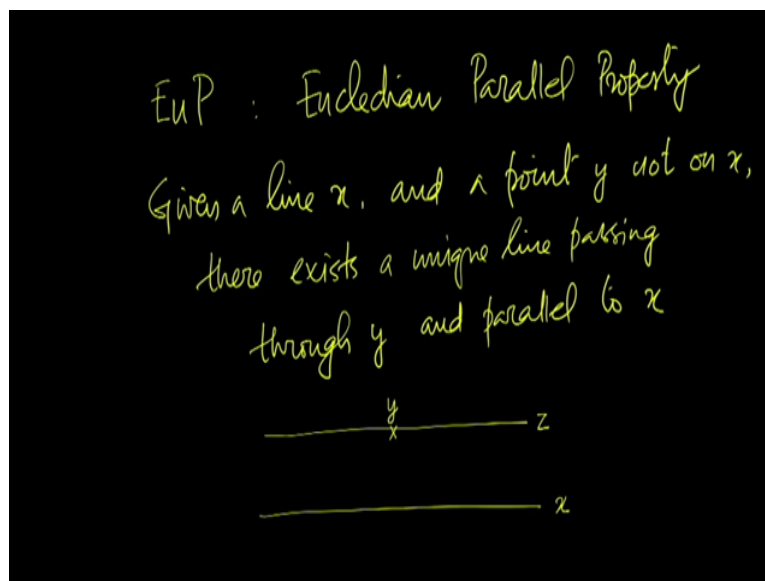 EuP : Eucledian Parallel Property
Given a line x, and a point y not on x,
there exists a unique line passing
through y and parallel to x
y
z
x